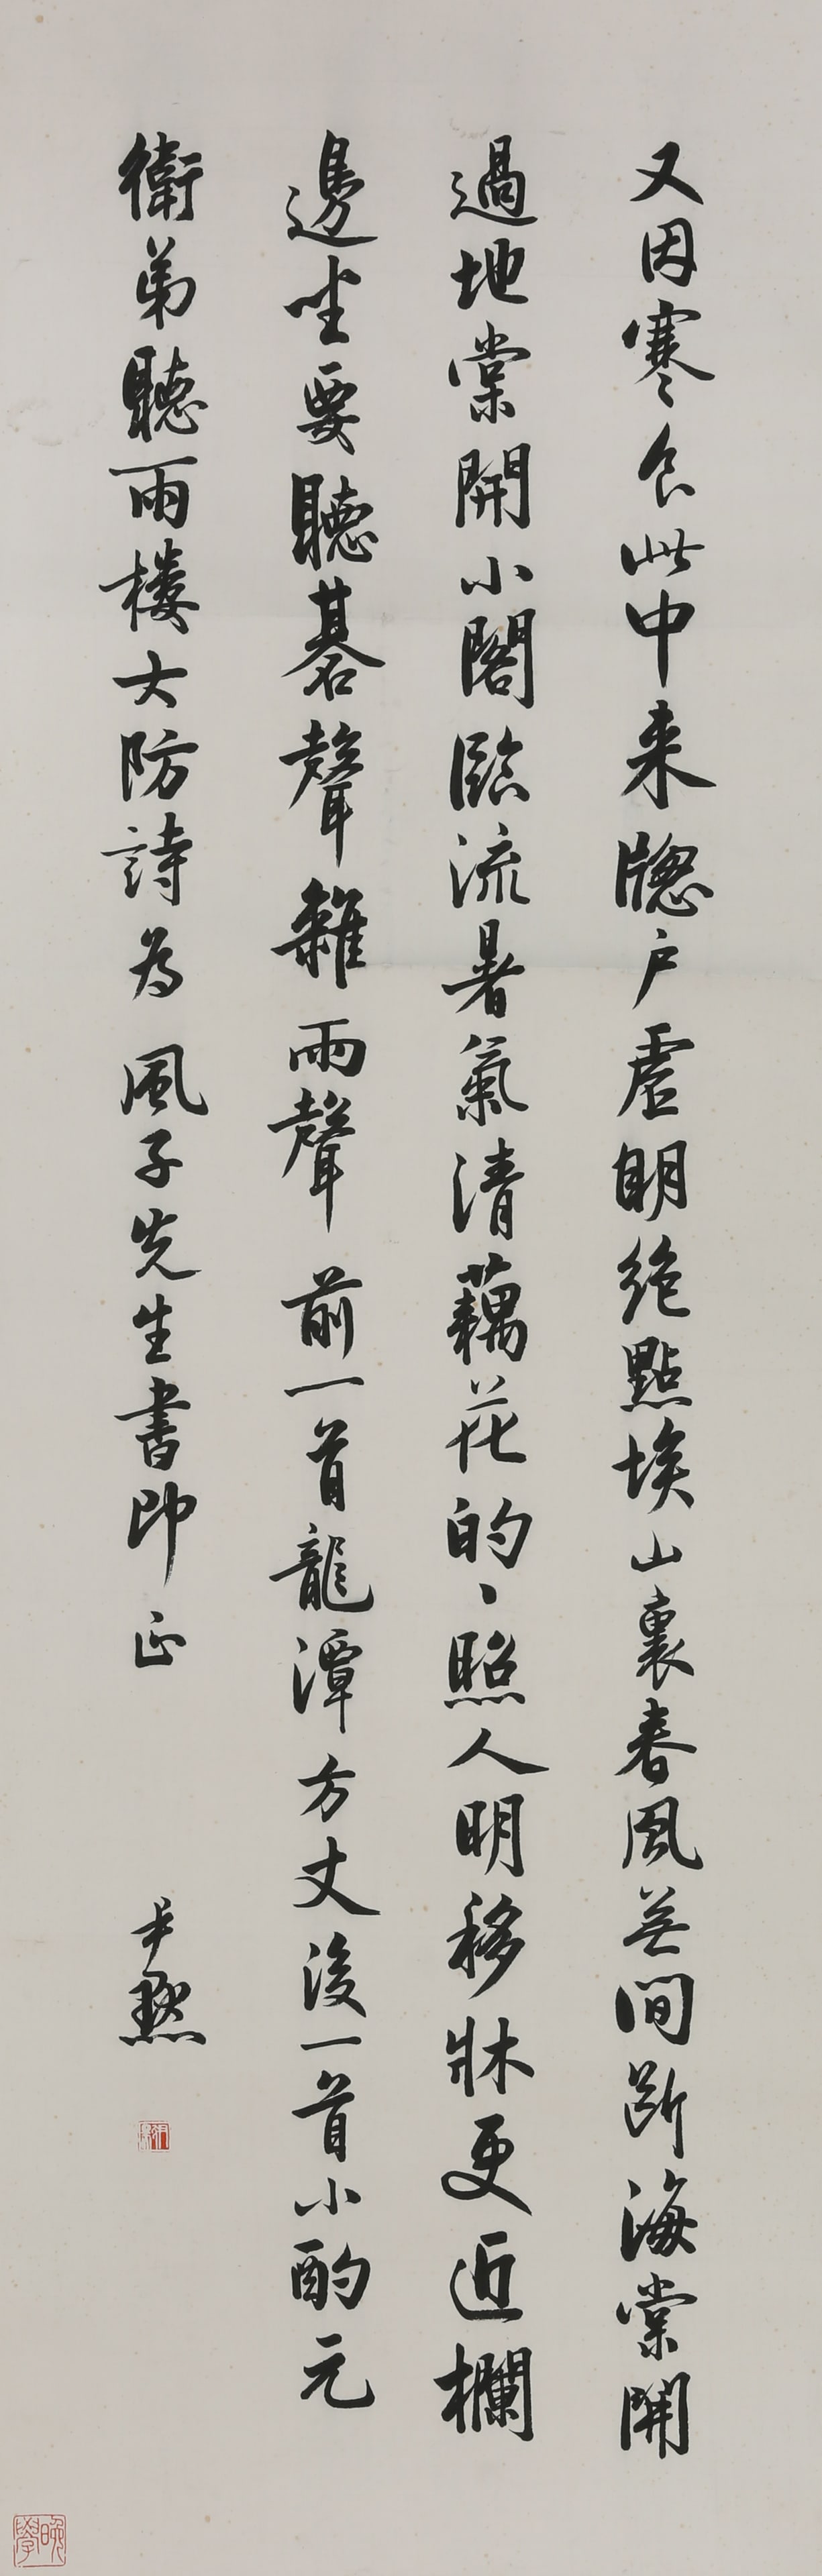 又因寒食此中来牕户虚明絶點埃山裏春風無間斷海棠開
過地棠開小閣臨流暑氣清藕花的、照人明移牀更近欄
邊坐要聽碁聲雜雨聲 前一首龍潭方丈後一首小酌元
衛弟聽雨樓大防詩為 風子先生書即 正
尹默
晚學